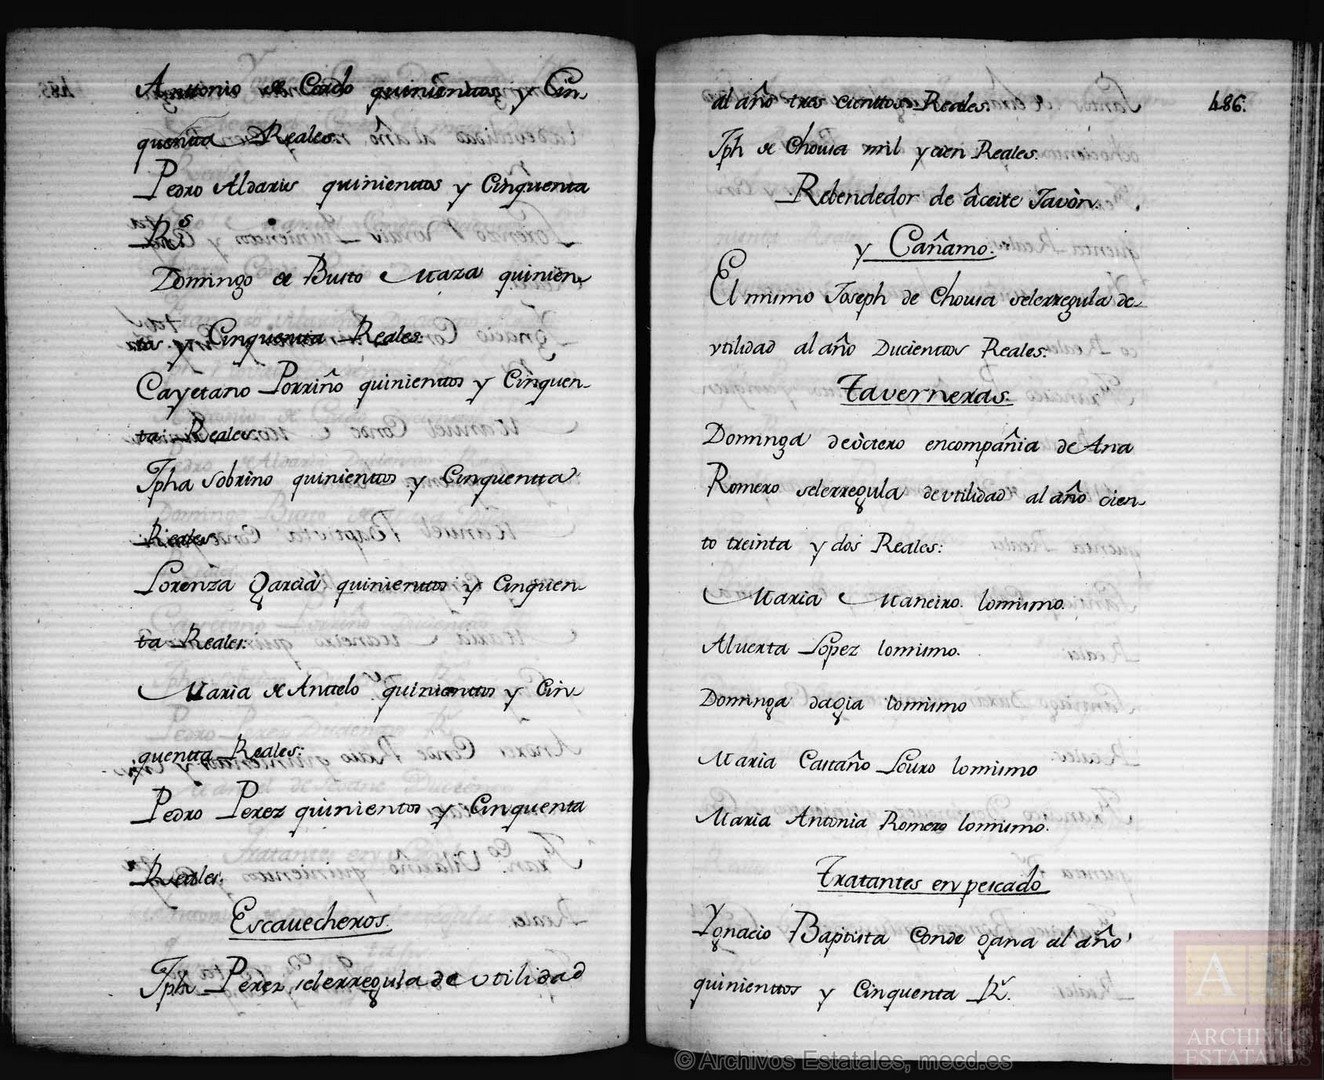 Anttonio de Cordo quinienttos y Cin-
quenta Reales.
Pedro Aldariz quinienttos y Cinquenta
R.s
Domingo de Busto Maza quinien-
tos y Cinquenta Reales.
Cayetano Porriño quinienttos y Cinquen-
ta Reales.
Jpha Sobrino quinienttos y Cinquentta
Reales.
Lorenza Garcia quinienttos y Cinquen-
ta Reales.
Maria de Anttelo quinienttos y Cin-
quentta Reales.
Pedro Perez quinienttos y Cinquenta
Reales.
Escavecheros.
Jph Perez selerregula de utilidad
486.
al año tres cienttos Reales.
Jph de Chousa mil y cien Reales.
Rebendedor de âceite Javòn
y Cañamo.
El mismo Joseph de Chousa selerregula de
vtilidad al año Ducienttos Reales.
Taverneras.
Dominga deòctero encompañia de Ana
Romero selerregula de vtilidad al año cien-
to treinta y dos Reales:
Maria Maneiro lomismo.
Alverta Lopez lomismo.
Dominga dagia lomismo
Maria Castaño Louro lomismo
Maria Antonia Romero lomismo.
Tratantes en pescado
Ygnacio Baptista Conde gana al año
quinienttos y Cinquenta R.s
© Archivos Estatales, mecd.es
ARCHIVOS
ESTATALES